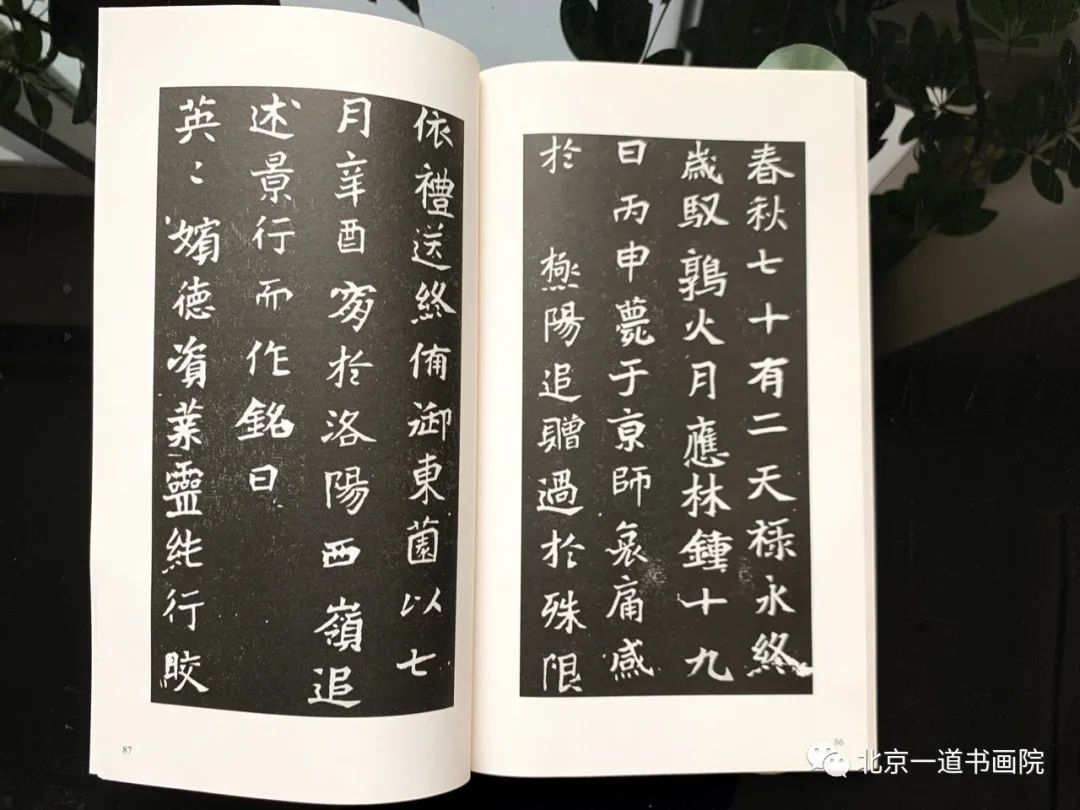 春秋七十有二天祿永終
歲馭鶉火月應林鍾十九
日丙申薨于京師哀痛感
於極陽追贈過於殊限
86
依禮送終備御東薗以七
月辛酉窆於洛陽西嶺追
述景行而作銘曰
英〻嬪德資業靈純行皎
87
北京一道书画院